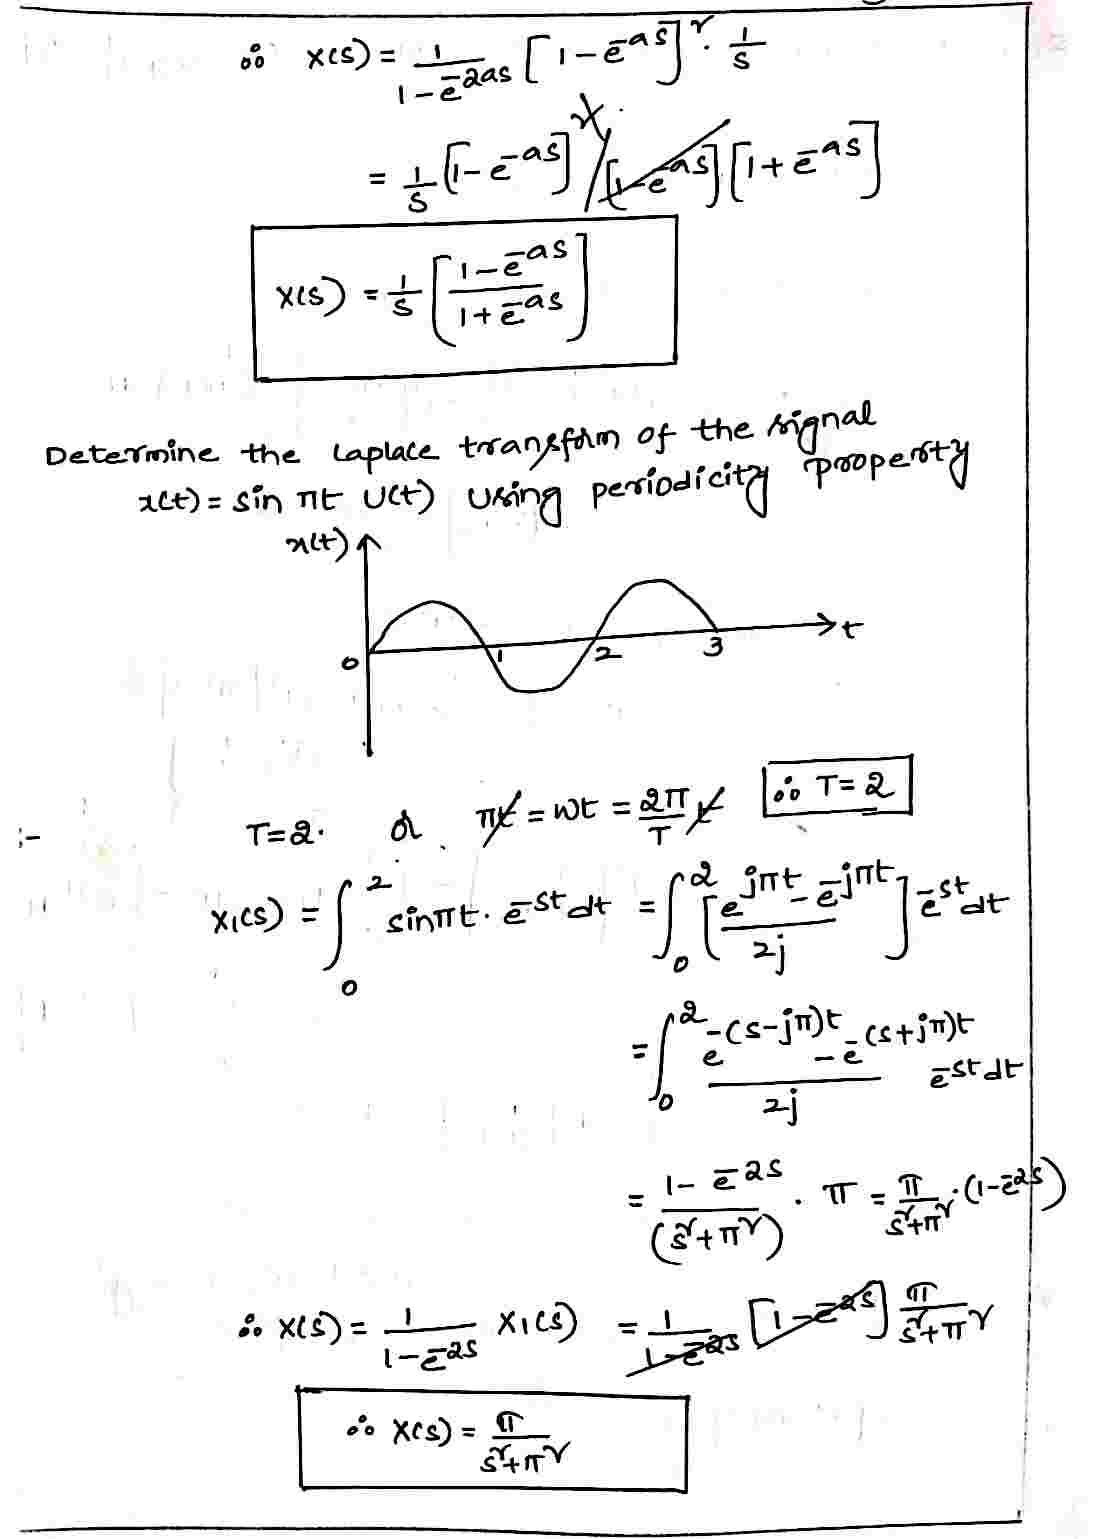 ∴ X(s) = 1/(1-e^-2as) [1-e^-as]^2 · 1/s
= 1/s [1-e^-as]^2 / [1-e^-as] [1+e^-as]
X(s) = 1/s [(1-e^-as)/(1+e^-as)]
Determine the Laplace transform of the signal
x(t) = sin πt U(t) using periodicity property
x(t)
0 1 2 3 t
:- T=2. or πt = wt = 2π/T t ∴ T=2
X1(s) = ∫_0^2 sinπt · e^-st dt = ∫_0^2 [(e^jπt - e^-jπt)/2j] e^-st dt
= ∫_0^2 (e^-(s-jπ)t - e^-(s+jπ)t)/2j e^-st dt
= (1-e^-2s)/(s^2+π^2) · π = π/(s^2+π^2) · (1-e^-2s)
∴ X(s) = 1/(1-e^-2s) X1(s) = 1/(1-e^-2s) [1-e^-2s] π/(s^2+π^2)
∴ X(s) = π/(s^2+π^2)